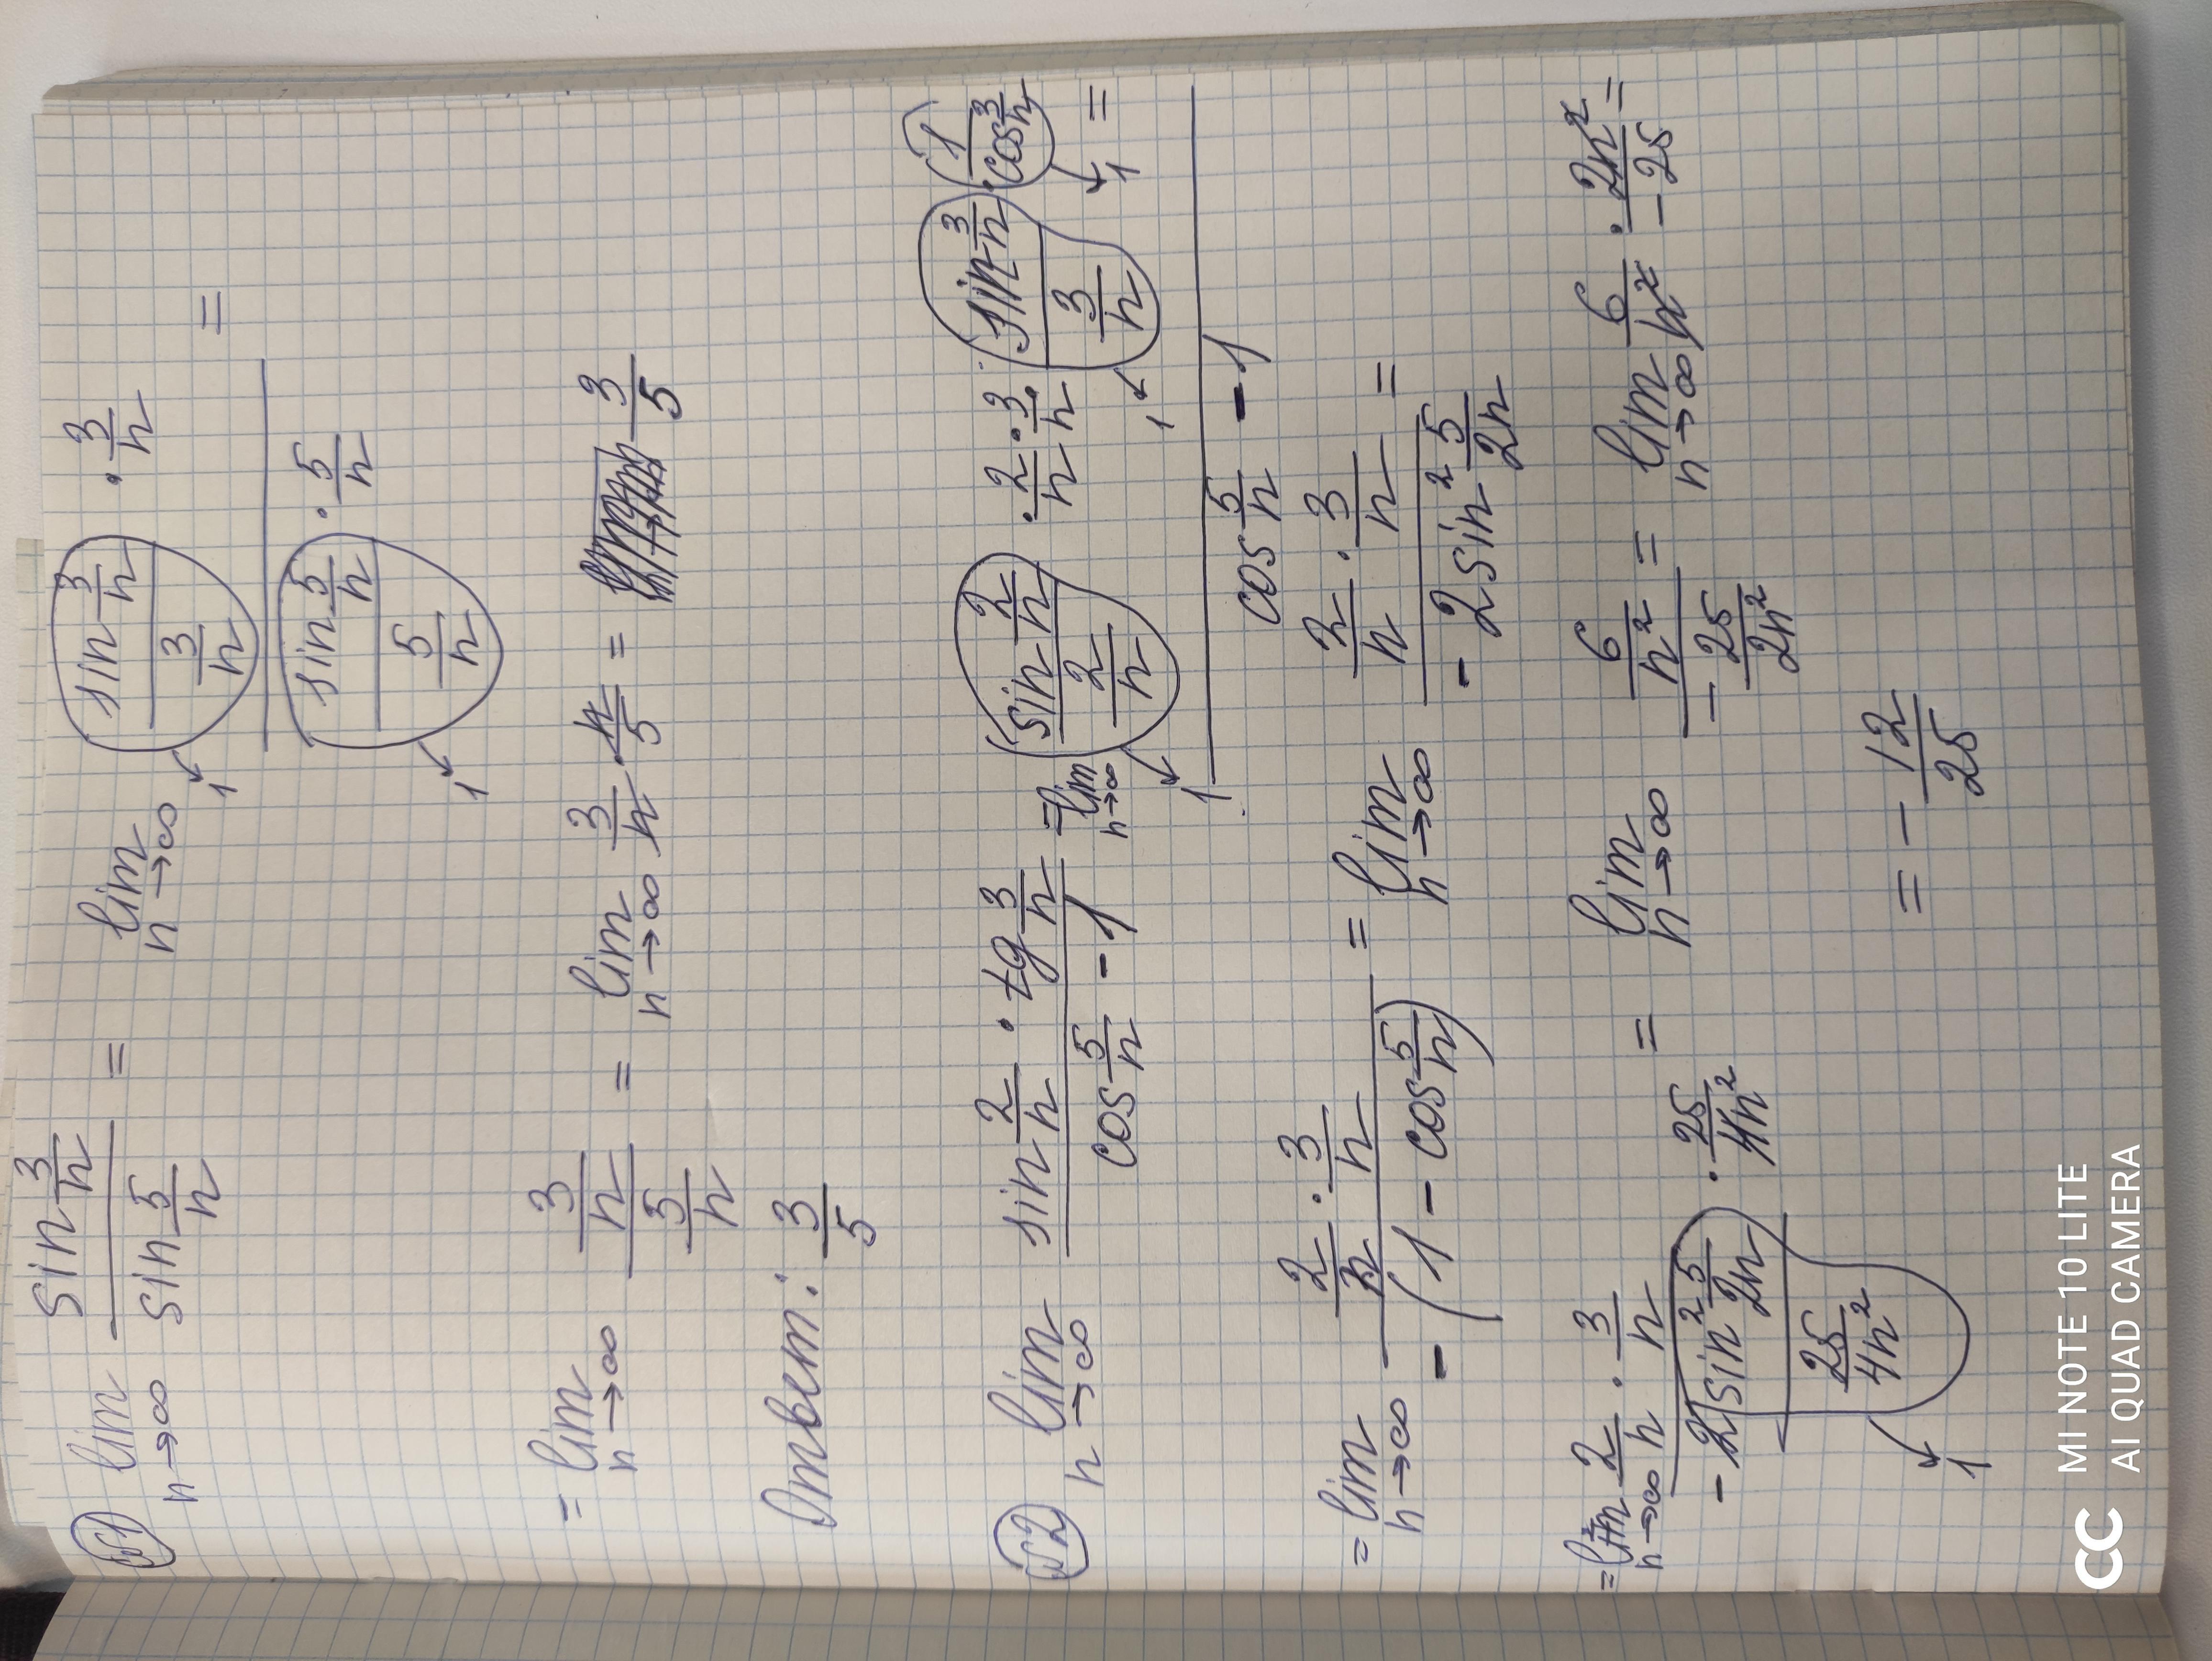 №1 lim n→∞ (sin 3/n)/(sin 5/n) = lim n→∞ ((sin 3/n)/(3/n) · 3/n)/((sin 5/n)/(5/n) · 5/n) =
→1
→1
= lim n→∞ (3/n)/(5/n) = lim n→∞ 3/n · n/5 = 3/5
Ответ: 3/5
№2 lim n→∞ (sin 2/n · tg 3/n)/(cos 5/n - 1) = lim n→∞ ((sin 2/n)/(2/n) · 2/n · 3/n · (sin 3/n)/(3/n) · 1/(cos 3/n))/(cos 5/n - 1) =
→1 →1 →1
= lim n→∞ (2/n · 3/n)/(-(1 - cos 5/n)) = lim n→∞ (2/n · 3/n)/(-2 sin² 5/2n) =
= lim n→∞ (2/n · 3/n)/(-2 (sin² 5/2n)/(25/4n²) · 25/4n²) = lim n→∞ (6/n²)/(-25/2n²) = lim n→∞ 6/n² · 2n²/-25 =
→1
= - 12/25
MI NOTE 10 LITE
AI QUAD CAMERA